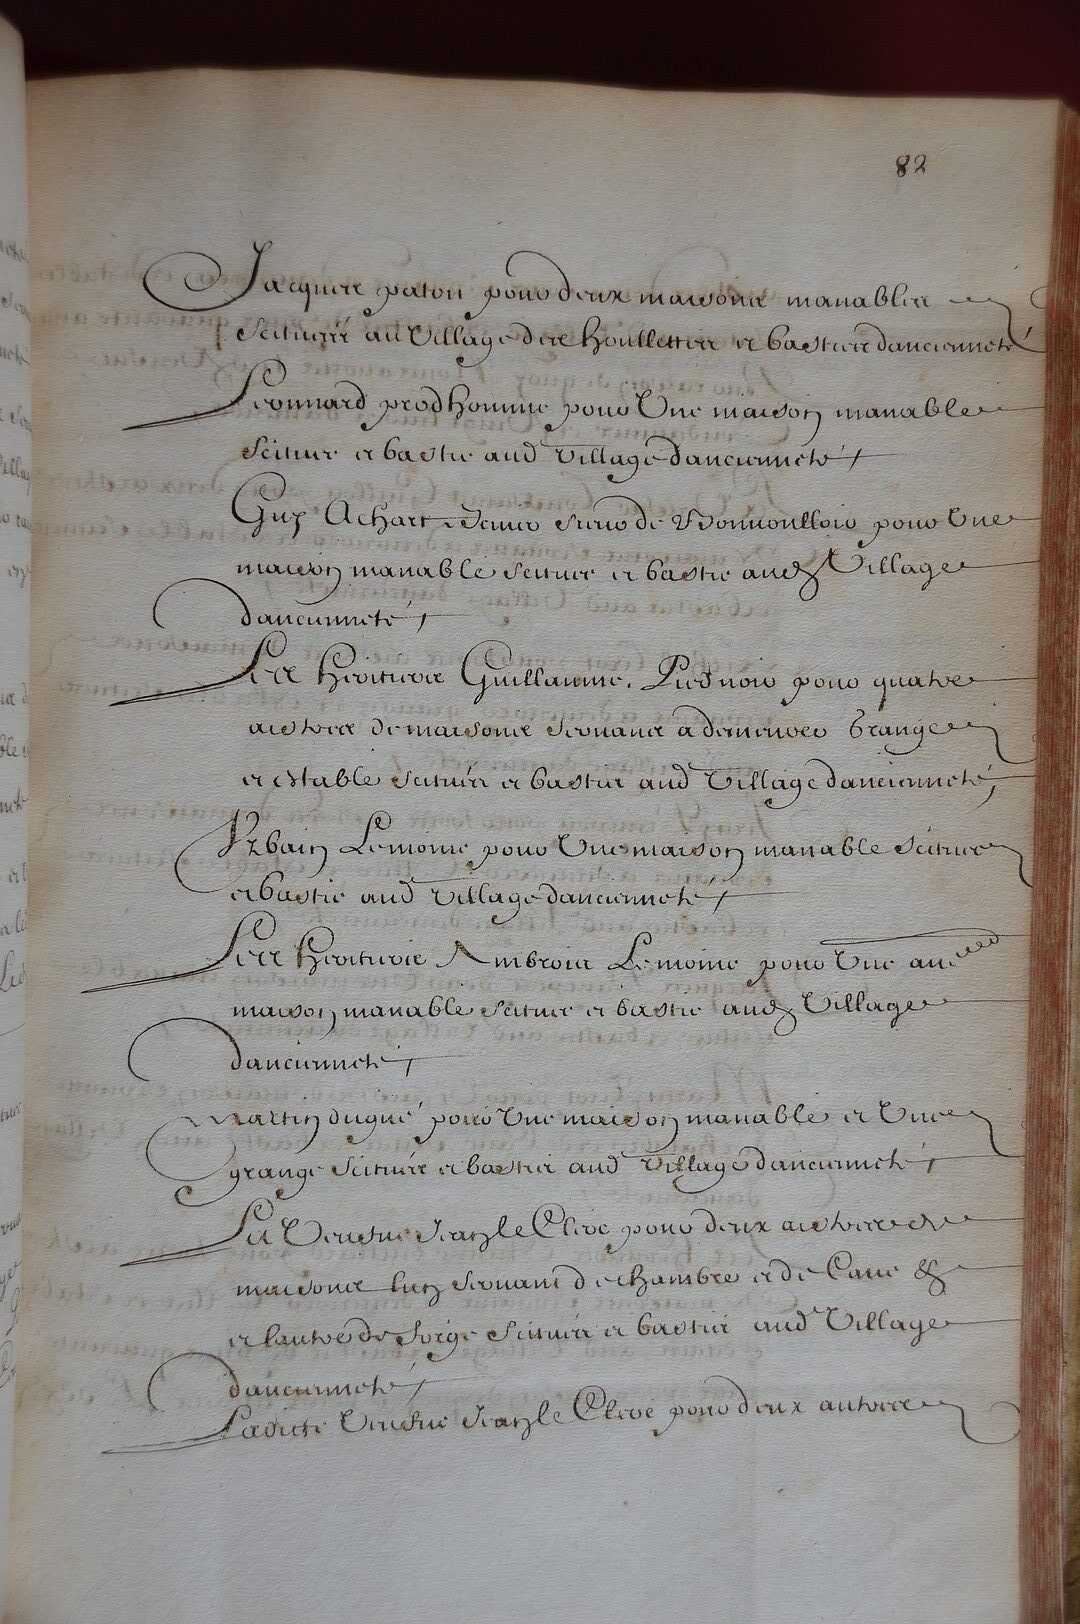 82
Jacques paton pour deux maisons manables
scituées au Village des houllettes et basties dancienneté
Leonnard prodhomme pour Une maison manable
scituee et bastie aud Village dancienneté
Guy Achart Escuier sieur de Bonmoulloir pour Une
maison manable scituee et bastie aud Village
dancienneté
Les heritiers Guillaume Piednoir pour quatre
aistres de maisons servans a demeurer grange
et estable scituées et basties aud Village dancienneté
Vrbain Lemoine pour Une maison manable scituee
et bastie aud Village dancienneté
Les heritiers Ambrois Lemoine pour Une
maison manable scituee et bastie aud Village
dancienneté
Martin dugué pour Une maison manable et Une
grange scituées et basties aud Village dancienneté
La Veufue Jean le Clerc pour deux aistres de
maisons lun servant de chambre et de Caue
et lautre de forge scituées et basties aud Village
dancienneté
Ladicte Veufue Jean le Clerc pour deux autres